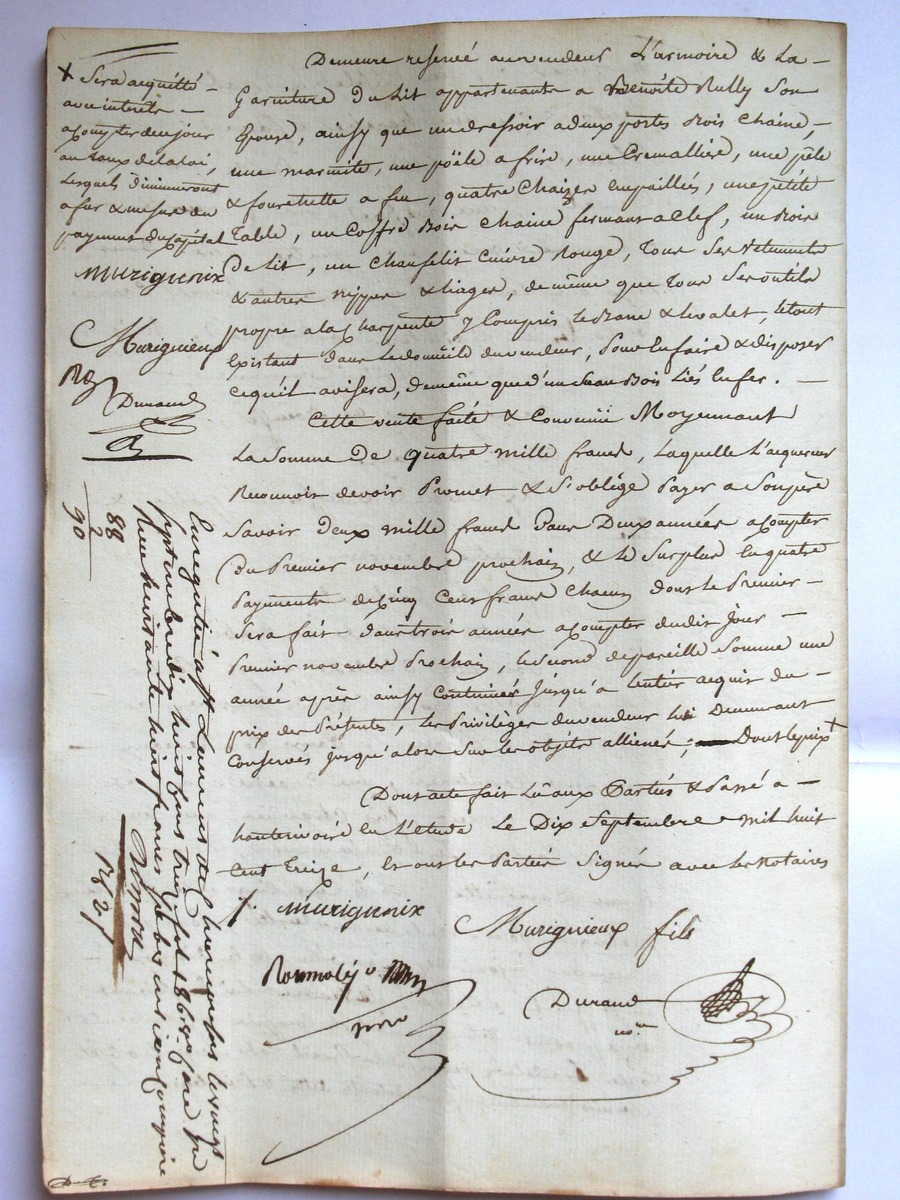 Demeure reservé au vendeur L'armoire & La
Garniture Du Lit appartenante a Benoite Rully Son
Epouse, ainsy que un dressoir a deux portes Bois Chaine,
une marmite, une pöële a frire, une Cremallière, une pèle
& fourchette a feu, quatre Chaizes empaillés, une petite
Table, un Coffre Bois Chaine fermant a Clef, un Bois
De Lit, un Chaufelit Cuivre Rouge, Tous Ses Vetements
& autres nippes & liages, de même que Tous Ses outils
propre a la Charpente y Compris le Banc & chevalet, le tout
Existant dans le domicile du vendeur, pour En faire & disposer
ce qu'il avisera, de même que d'un Seau Bois Liés En fer.
Cette vente faite & Convenüe Moyennant
La Somme De quatre mille francs, Laquelle L'acquereur
Reconnoit devoir Promet & S'oblige Payer a Son père
Savoir Deux mille francs Dans Deux années a Compter
Du Premier novembre prochain, & le Surplus En quatre
Payements de Cinq Cents francs Chacun dont le Premier
Sera fait dans trois années a Compter dudit Jour
Premier novembre Prochain, le Second de pareille Somme une
année après ainsy Continuer Jusqu'a Entier acquis du
prix des Présentes, les Privilèges du vendeur lui Demeurant
Conservés jusqu'alors Sur les objets alliénés, Dont le prix +
Dont acte fait Lû aux Parties & Passé a
hauterivoire En L'etude Le Dix Septembre mil huit
Cent Treize, Et ont les Parties Signé avec les Notaires
murigneux
Murignieux fils
Durand
nore
+ Sera acquitté
avec interets
a Compter de ce jour
au taux de la loi,
Lesquels diminueront
a fur & mesure du
payement du Capital
murigneux
Murignieux
Durand
Enregistré à St Laurent de Chamousset le vingt
Septembre dix huit cent treize fol 186 Ro Case
Reçu huitante huit francs
88
2
90